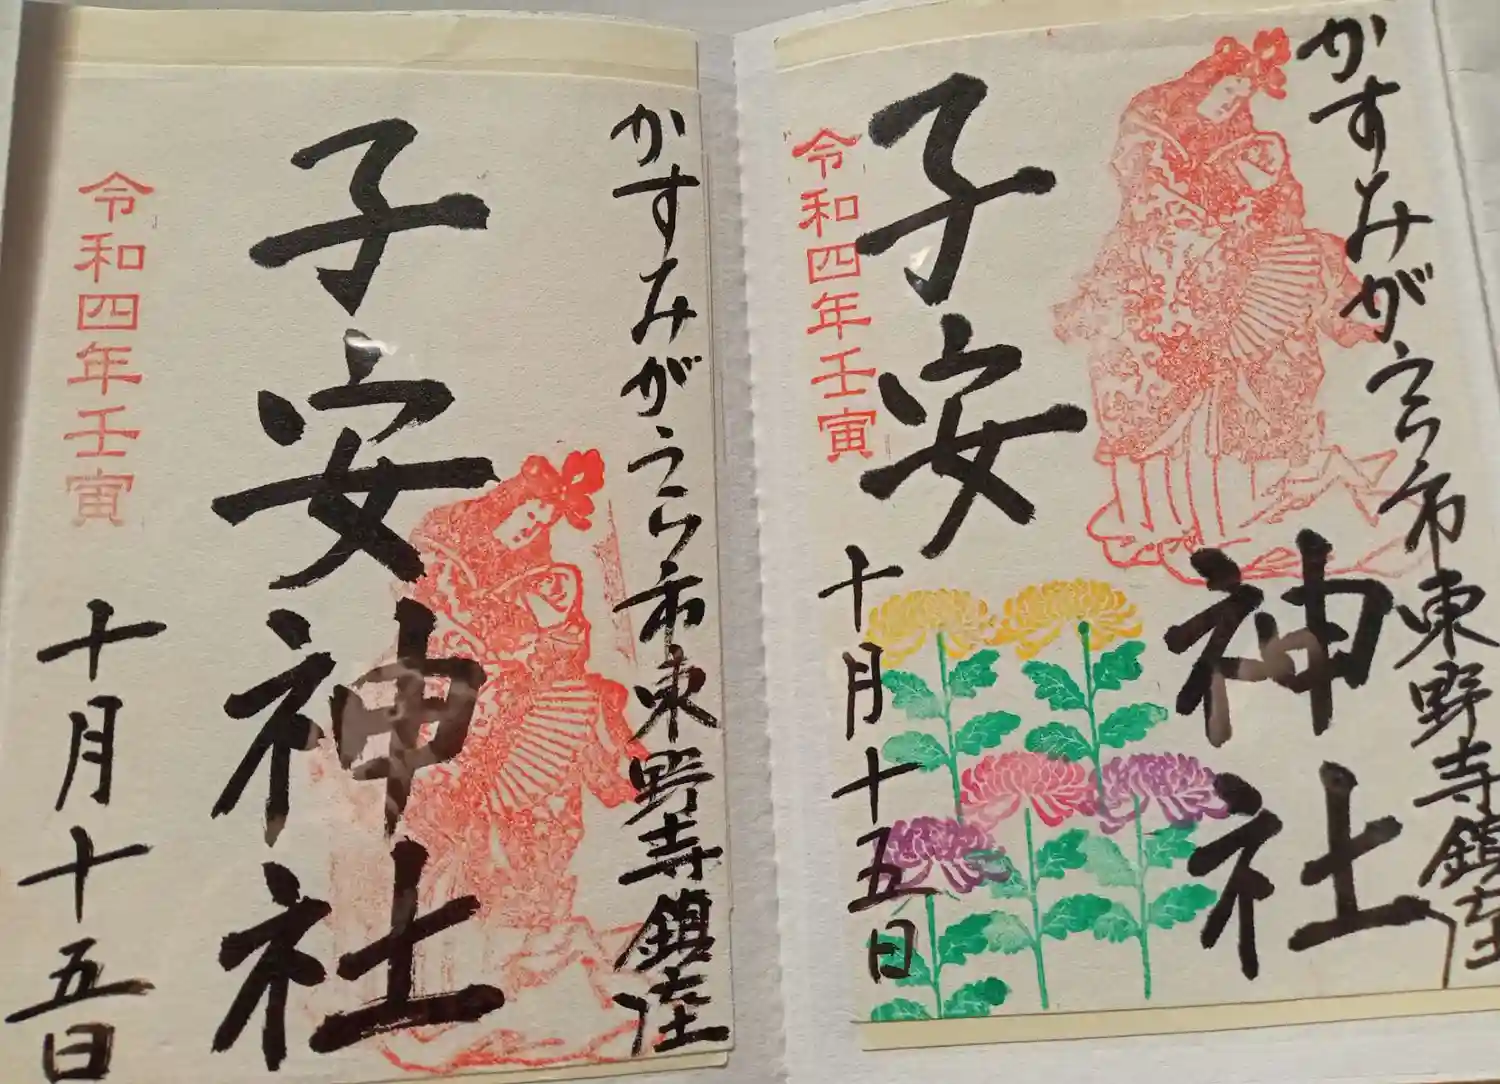 かすみがうら市東野寺鎮座
子安神社
令和四年壬寅
十月十五日
かすみがうら市東野寺鎮座
子安
神社
令和四年壬寅
十月十五日